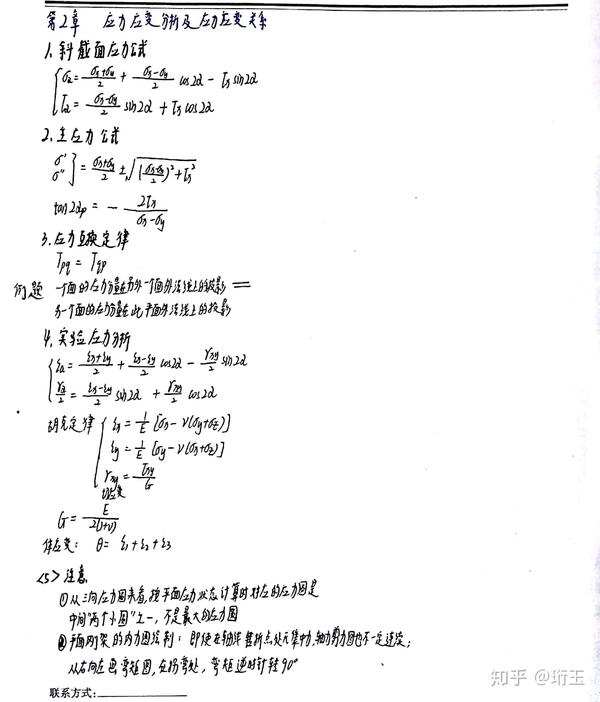 第2章 应力应变分析及应力应变关系
1. 斜截面应力公式
σα = (σx+σy)/2 + (σx-σy)/2 cos2α - τx sin2α
τα = (σx-σy)/2 sin2α + τx cos2α
2. 主应力公式
σ' σ'' } = (σx+σy)/2 ± √((σx-σy)/2)² + τx²
tan2αp = - 2τx/(σx-σy)
3. 应力互换定律
Tpq = Tqp
例题 一个面的应力分量在另外一个面外法线上的投影 =
另一个面的应力分量在此平面外法线上的投影
4. 实验应力分析
εα = (εx+εy)/2 + (εx-εy)/2 cos2α - γxy/2 sin2α
γα/2 = (εx-εy)/2 sin2α + γxy/2 cos2α
胡克定律 { εx = 1/E [σx - ν(σy+σz)]
εy = 1/E [σy - ν(σx+σz)]
γxy = τxy/G
切应变
G = E/2(1+ν)
体应变: θ = ε1 + ε2 + ε3
<5> 注意
① 从三向应力圆来看, 按平面应力状态计算时对应的应力圆是
中间"两个小圆"之一, 不是最大的应力圆
② 平面刚架的内力图绘制: 即使在轴线转折点处无集中力, 轴力剪力图也不一定连续;
从右向左画弯矩图, 在拐弯处, 弯矩逆时针转90°
联系方式:
知乎 @珩玉